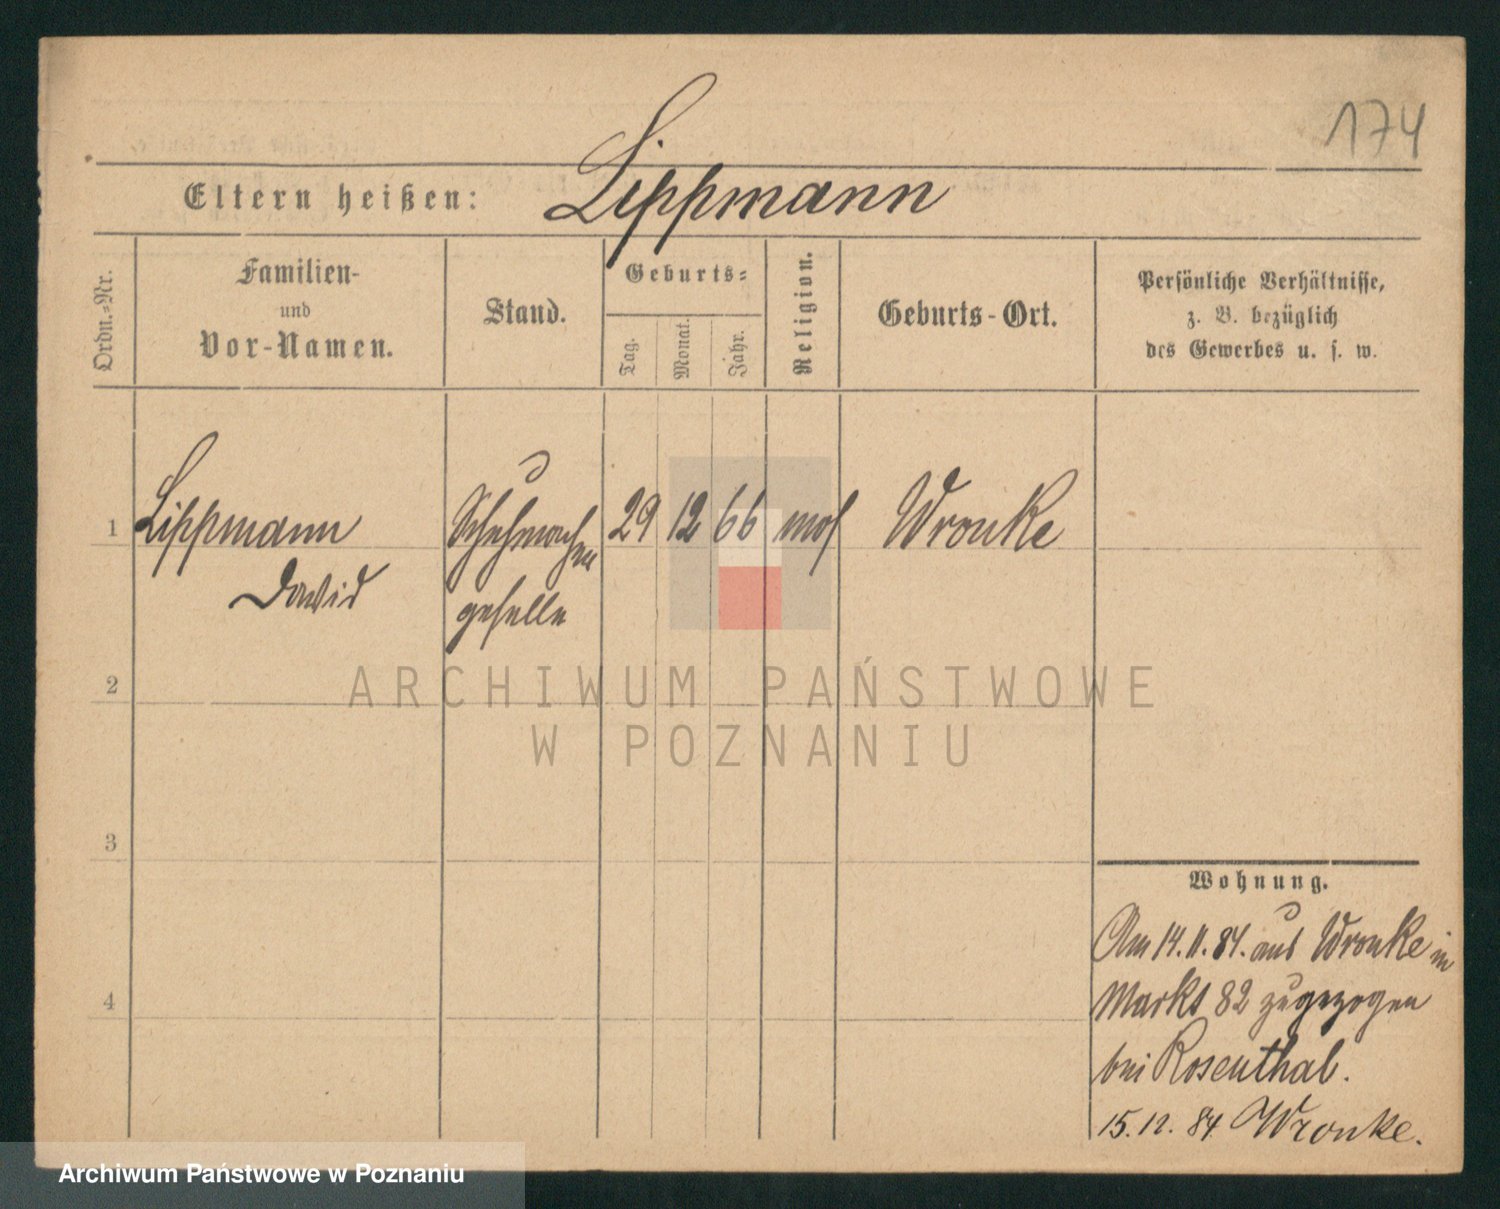 174
Eltern heißen: Lippmann
Ordn.-Nr.
Familien-
und
Vor-Namen.
Stand.
Geburts-
Tag.
Monat.
Jahr.
Religion.
Geburts-Ort.
Persönliche Verhältnisse,
z. B. bezüglich
des Gewerbes u. s. w.
1 Lippmann Schuhmacher 29 12 66 mos Wronke
David geselle
2
ARCHIWUM PAŃSTWOWE
W POZNANIU
3
Wohnung.
Am 14.11.84. aus Wronke in
4 Markt 82 zugezogen
bei Rosenthal.
15.12.84 Wronke.
Archiwum Państwowe w Poznaniu